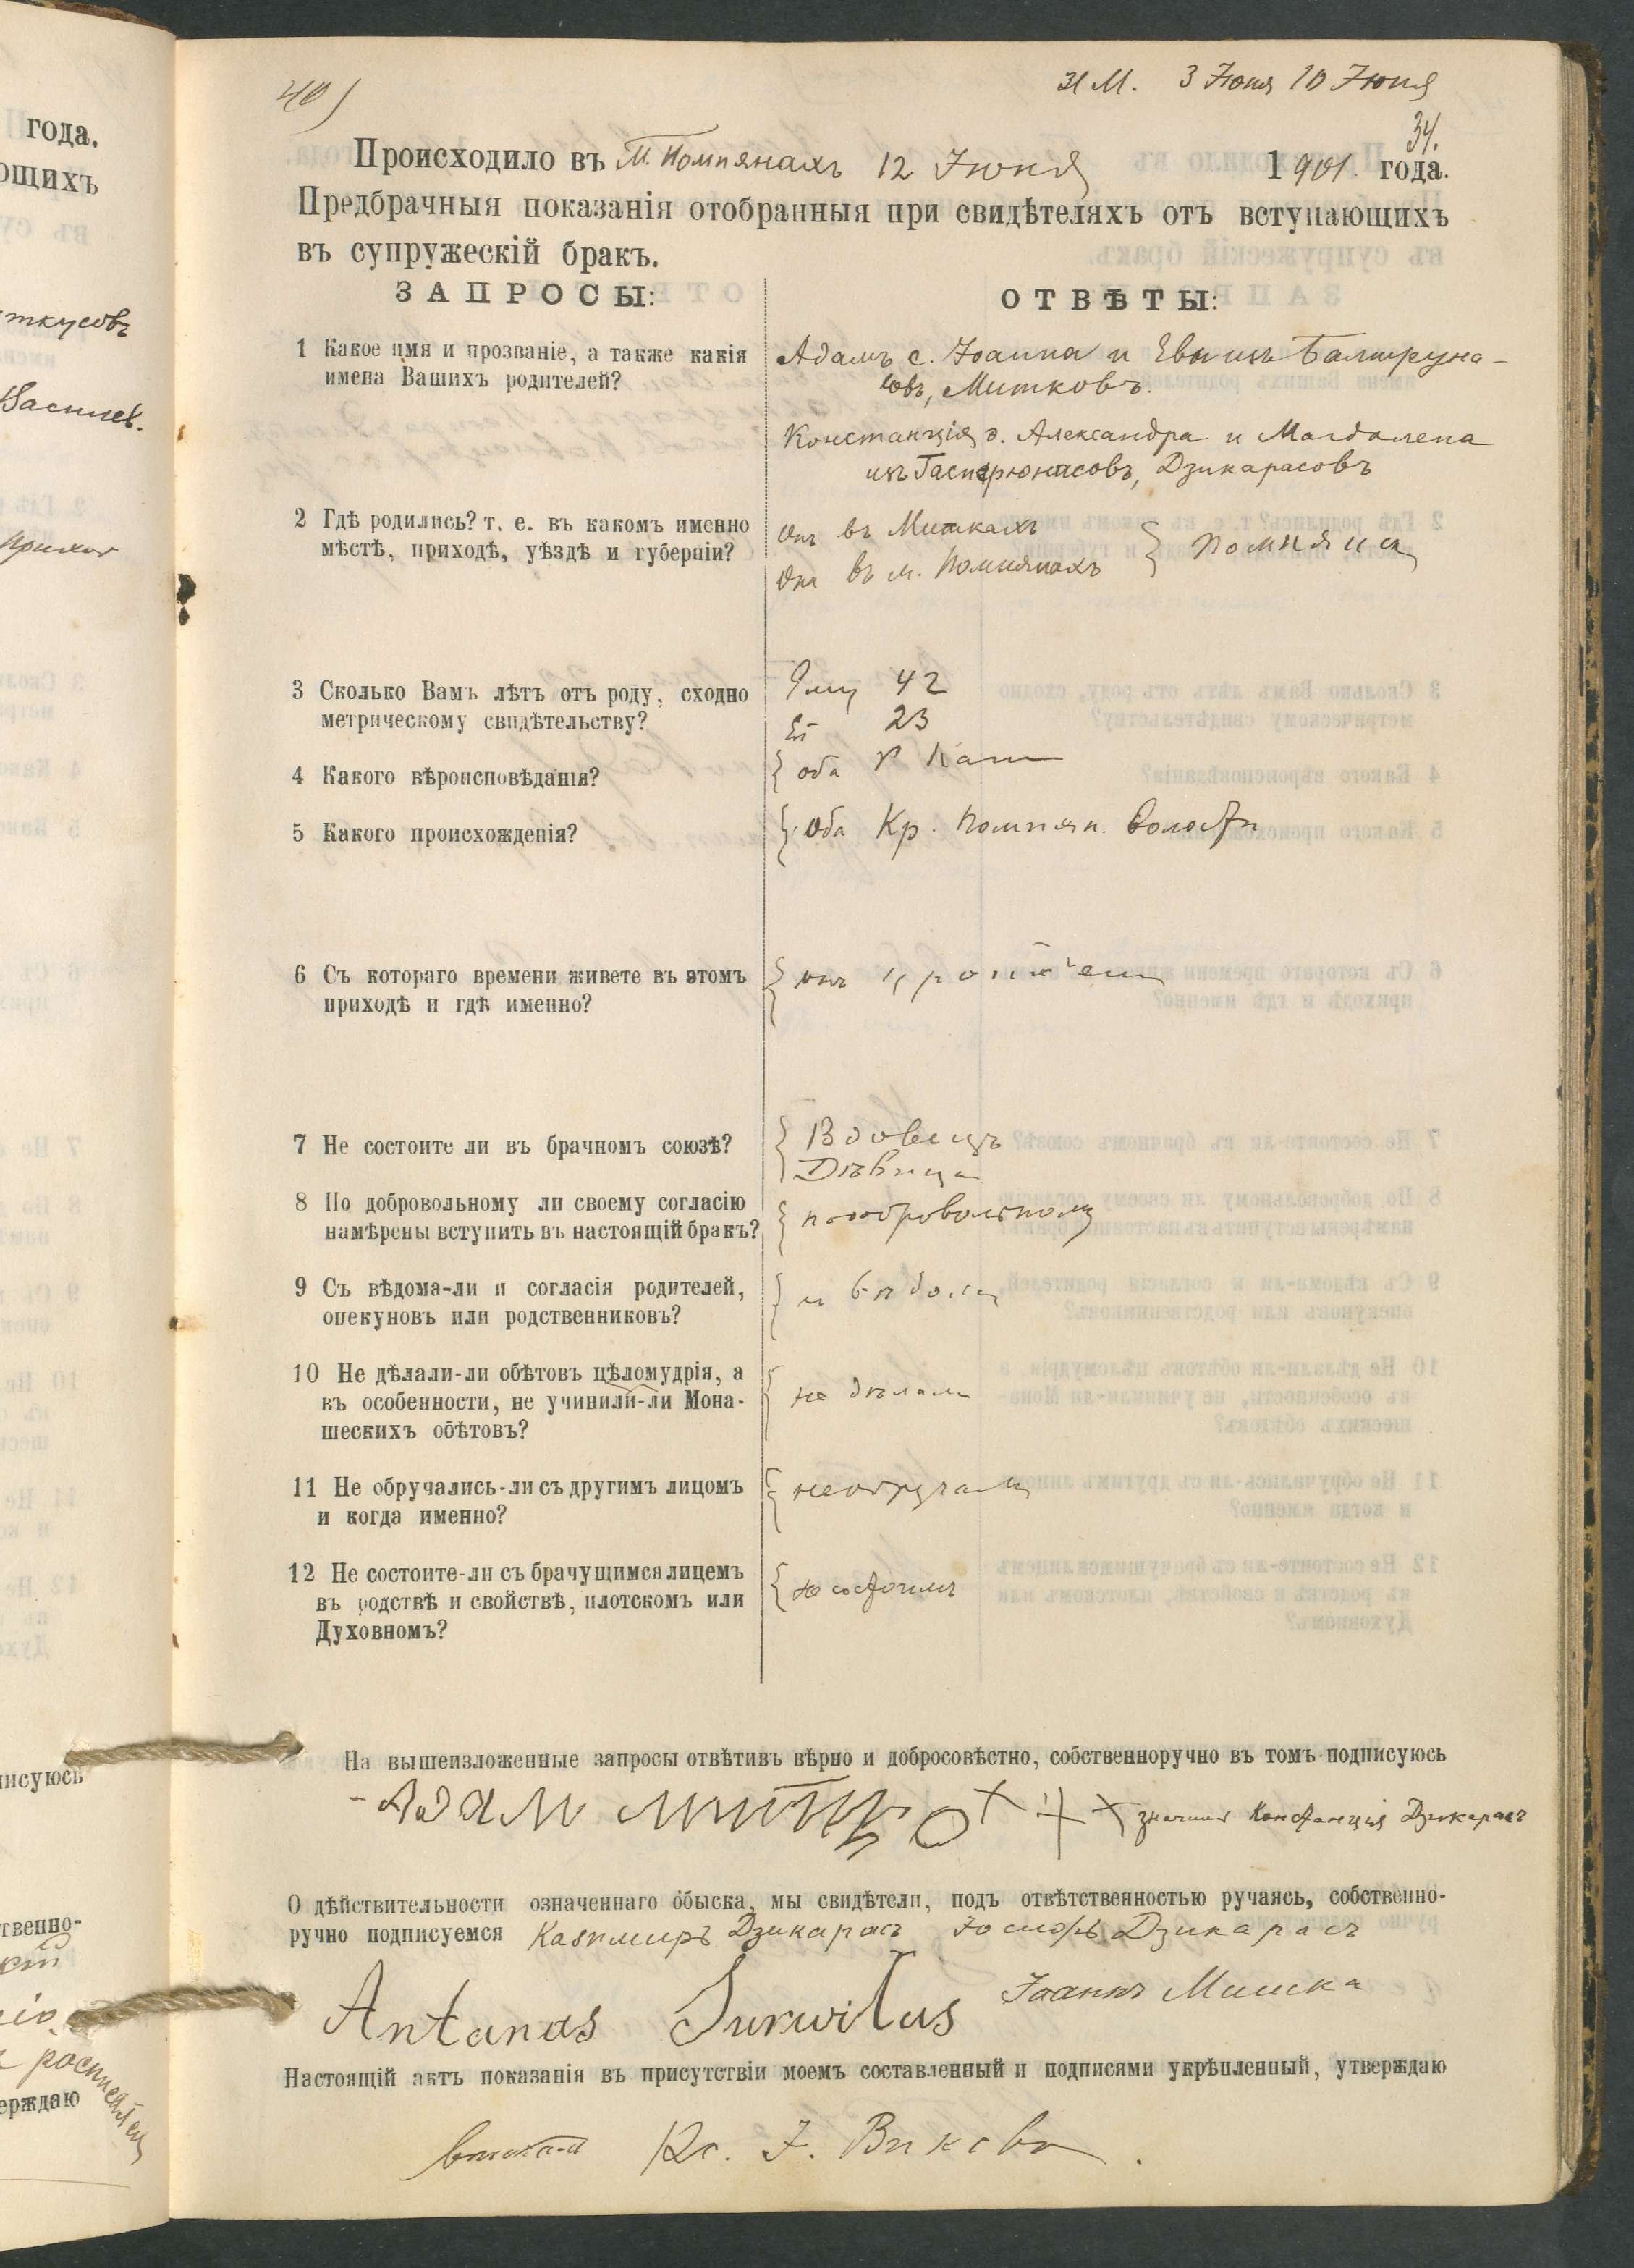 года.
ющихъ
ткусовъ
Василев.
писуюсь
твенно-
ерждаю
40)
31 М. 3 Іюня 10 Іюня
34.
Происходило въ М. Помпянахъ 12 Іюня 1901. года.
Предбрачныя показанія отобранныя при свидѣтеляхъ отъ вступающихъ
въ супружескій бракъ.
ЗАПРОСЫ:
ОТВѢТЫ:
1 Какое имя и прозваніе, а также какія
имена Вашихъ родителей?
Адамъ с. Іоанна и Евы изъ Балтруна-
совъ, Митковъ.
Констанція д. Александра и Магдалена
изъ Гасперюнасовъ, Дзикарасовъ
2 Гдѣ родились? т. е. въ какомъ именно
мѣстѣ, приходѣ, уѣздѣ и губерніи?
Онъ въ Миткахъ
Она въ м. Помпянахъ
3 Сколько Вамъ лѣтъ отъ роду, сходно
метрическому свидѣтельству?
Ему 42
Ей 23
4 Какого вѣроисповѣданія?
оба Р Кат
5 Какого происхожденія?
Оба Кр. Помпян. волости
6 Съ котораго времени живете въ этомъ
приходѣ и гдѣ именно?
7 Не состоите ли въ брачномъ союзѣ?
Вдовецъ
Дѣвица
8 По добровольному ли своему согласію
намѣрены вступить въ настоящій бракъ?
по добровольному
9 Съ вѣдома-ли и согласія родителей,
опекуновъ или родственниковъ?
10 Не дѣлали-ли обѣтовъ цѣломудрія, а
въ особенности, не учинили-ли Мона-
шескихъ обѣтовъ?
не дѣлали
11 Не обручались-ли съ другимъ лицомъ
и когда именно?
не обручали
12 Не состоите-ли съ брачущимся лицемъ
въ родствѣ и свойствѣ, плотскомъ или
Духовномъ?
не состоимъ
На вышеизложенные запросы отвѣтивъ вѣрно и добросовѣстно, собственноручно въ томъ подписуюсь
Адам + + + Констанція Дзикарасъ
О дѣйствительности означеннаго обыска, мы свидѣтели, подъ отвѣтственностью ручаясь, собственно-
ручно подписуемся Казимиръ Дзикарасъ Іосифъ Дзикарасъ
Іоаннъ Мишка
Antanas Surwilas
Настоящій актъ показанія въ присутствіи моемъ составленный и подписями укрѣпленный, утверждаю
Кс. І.